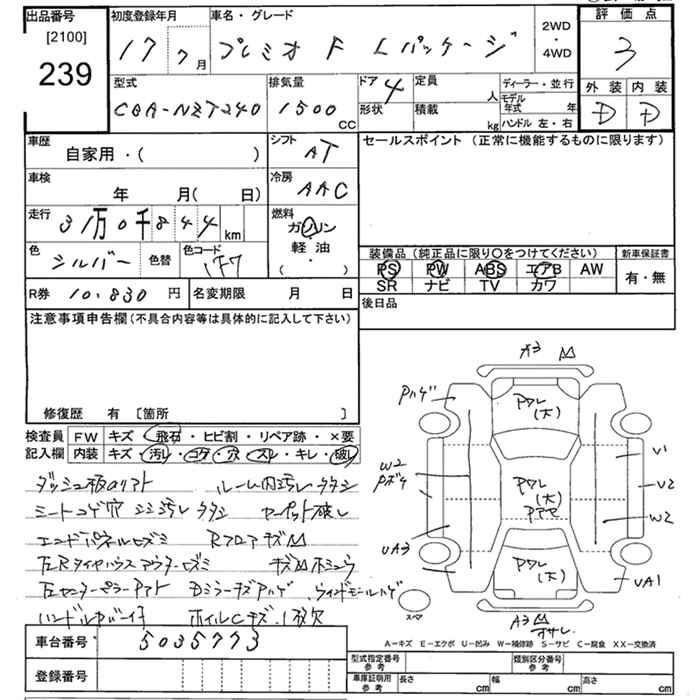 出品番号 初度登録年月 車名・グレード 2WD ・4WD 評価点
[2100]
239
17 7月 プレミオ F Lパッケージ 3
型式 排気量 ドア 4 定員 人 ディーラー・並行 外装 内装
CBA-NZT240 1500 CC 形状 積載 kg モデル年式 年 ハンドル 左・右 D D
車歴 シフト セールスポイント (正常に機能するものに限ります)
自家用・( ) AT
車検 冷房
年 月( 日) AAC
走行 燃料
31万0千844km ガソリン
軽・油
・( )
色 シルバー 色替 色コード 1F7
装備品 (純正品に限り○をつけてください) 新車保証書
PS PW ABS エアB AW 有・無
SR ナビ TV カワ
R券 10.830 円 名変期限 月 日 後日品
注意事項申告欄 (不具合内容等は具体的に記入して下さい)
修復歴 有 [箇所 ]
検査員 FW キズ・飛石・ヒビ割・リペア跡・×要
記入欄 内装 キズ・汚レ・コゲ・穴・スレ・キレ・破レ
ルーム内汚レ
シートコゲ穴 シミ汚レ カーペット破レ
RフロアキズM
左センターピラー DミラーキズAハゲ ウィンドモールハゲ
ホイルCキズ 1枚欠
A3 M
Pハゲ
PワレP(大)
V1
W2
Pボケ
Pワレ
(大)
U2
W2
UA3
Pワレ
(大)
UA1
スペア
A3 M
A-キズ E-エクボ U-凹み W-補修跡 S-サビ C-腐食 XX-交換済
車台番号 5035773
登録番号
型式指定番号 参考 類別区分番号 参考
車庫証明用 参考 長さ cm 幅 cm 高さ cm